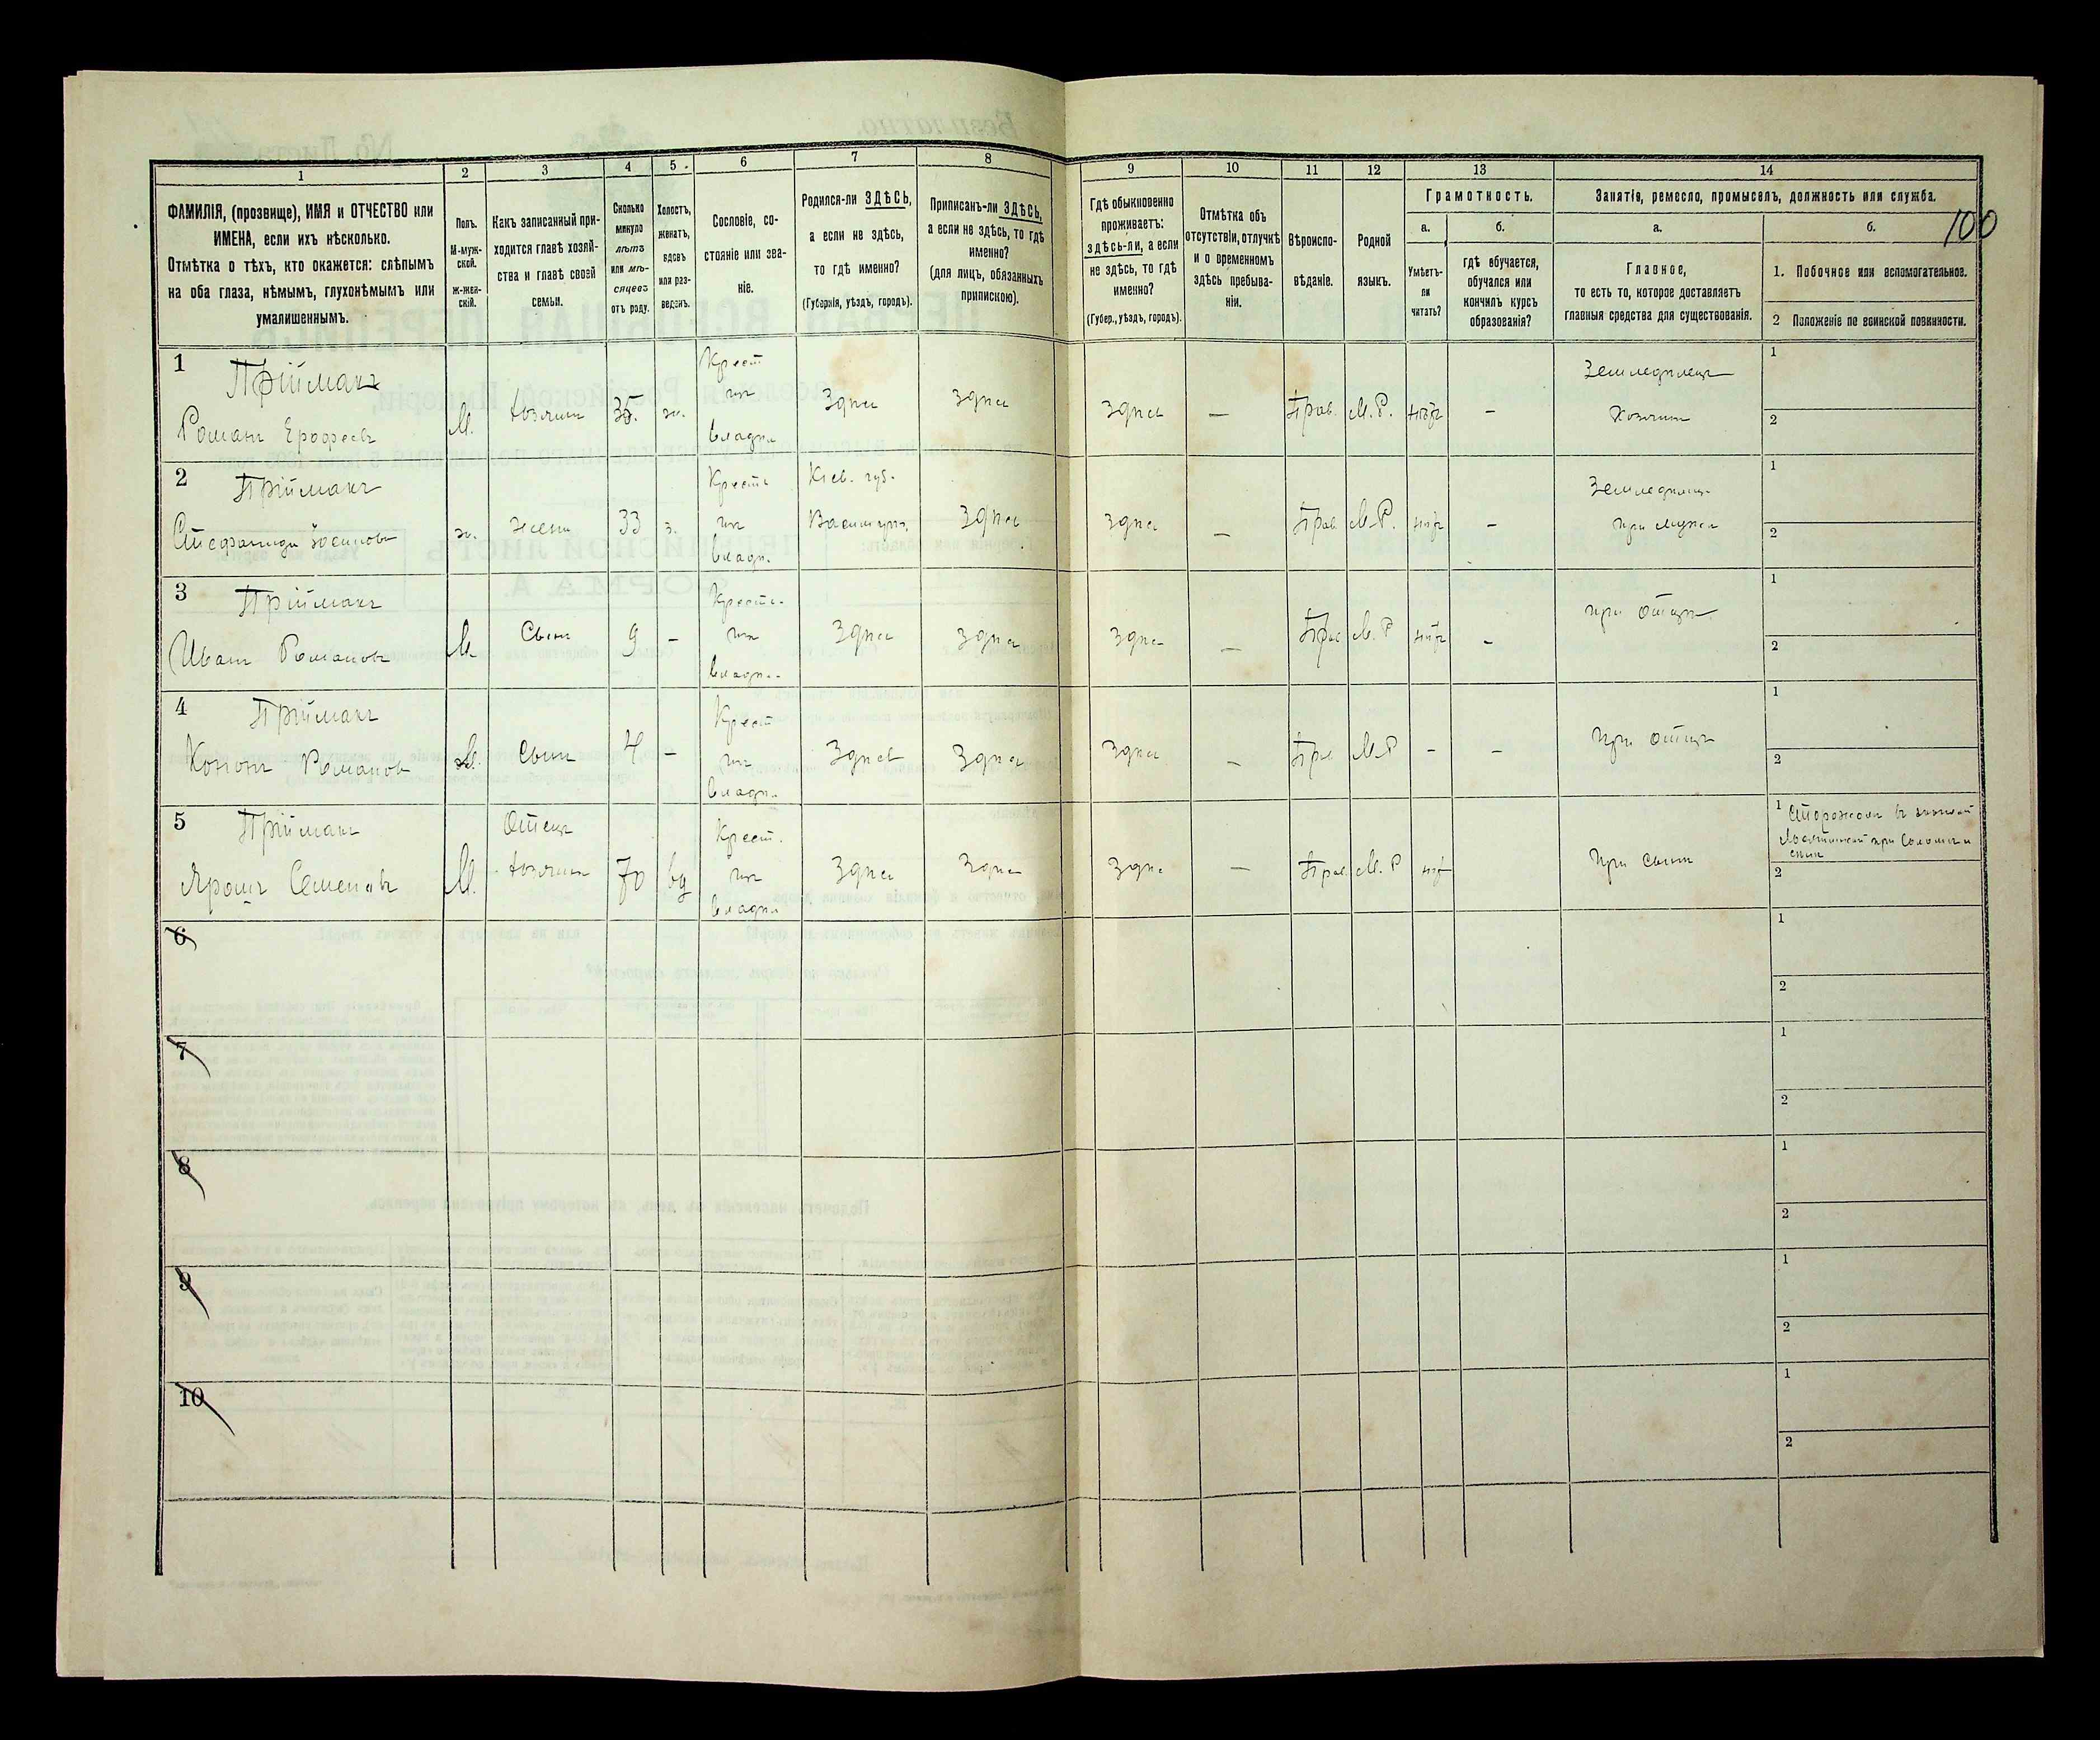 100
1 2 3 4 5 6 7 8 9 10 11 12 13 14
ФАМИЛІЯ, (прозвище), ИМЯ и ОТЧЕСТВО или
ИМЕНА, если ихъ нѣсколько.
Отмѣтка о тѣхъ, кто окажется: слѣпымъ
на оба глаза, нѣмымъ, глухонѣмымъ или
умалишеннымъ.
Полъ.
М-муж-
ской.
Ж-жен-
скій.
Какъ записанный при-
ходится главѣ хозяй-
ства и главѣ своей
семьи.
Сколько
минуло
лѣтъ
или мѣ-
сяцевъ
отъ роду.
Холостъ,
женатъ,
вдовъ
или раз-
веденъ.
Сословіе, со-
стояніе или зва-
ніе.
Родился-ли ЗДѢСЬ,
а если не здѣсь,
то гдѣ именно?
(Губернія, уѣздъ, городъ).
Приписанъ-ли ЗДѢСЬ,
а если не здѣсь, то гдѣ
именно?
(для лицъ, обязанныхъ
припискою).
Гдѣ обыкновенно
проживаетъ:
здѣсь-ли, а если
не здѣсь, то гдѣ
именно?
(Губер., уѣздъ, городъ).
Отмѣтка объ
отсутствіи, отлучкѣ
и о временномъ
здѣсь пребыва-
ніи.
Вѣроиспо-
вѣданіе.
Родной
языкъ.
Грамотность.
а.
Умѣетъ-
ли
читать?
б.
гдѣ обучается,
обучался или
кончилъ курсъ
образованія?
Занятіе, ремесло, промыселъ, должность или служба.
а.
Главное,
то есть то, которое доставляетъ
главныя средства для существованія.
б.
1. Побочное или вспомогательное.
2 Положеніе по воинской повинности.
1
Прiймакъ
Романъ Ерофеевъ
М.
хозяинъ
35.
ж.
Крест
изъ
владѣл
здѣсь
здѣсь
здѣсь
—
Прав.
М. Р.
нѣтъ
–
Земледѣлецъ
Хозяинъ
1
2
2
Прiймакъ
ж.
жена
33
з.
Кресть
изъ
владѣ.
Кiев. губ.
здѣсь
здѣсь
—
Прав
М. Р.
нѣтъ
–
Земледѣлец.
при мужѣ
1
2
3
Прiймакъ
Иванъ Романовъ
М
Сынъ
9
–
Крест.
изъ
владѣ.
здѣсь
здѣсь
здѣсь
—
Прав
М. Р
нѣтъ
–
при отцѣ
1
2
4
Прiймакъ
Кононъ Романовъ
М.
Сынъ
4
–
Крест
изъ
владѣ.
здѣсь
здѣсь
здѣсь
—
Прав
М. Р
–
–
при отцѣ
1
2
5
Прiймакъ
Ярошъ Семеновъ
М.
Отецъ
хозяина
70
вд
Крест.
изъ
владѣл
здѣсь
здѣсь
здѣсь
—
Прав.
М. Р
нѣтъ
При сынѣ
1
Сторожемъ въ
2
6
1
2
7
1
2
8
1
2
9
1
2
10
1
2